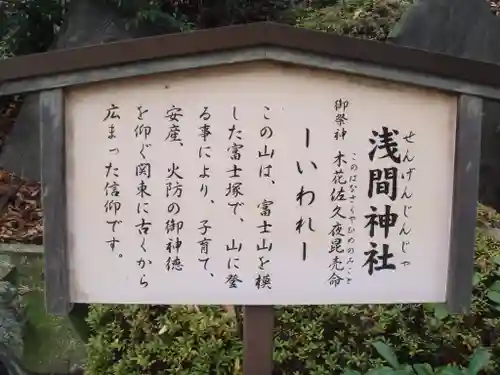 浅間神社
せんげんじんじゃ
御祭神 木花佐久夜毘売命
このはなさくやひめのみこと
ーいわれー
この山は、富士山を模
した富士塚で、山に登
る事により、子育て、
安産、火防の御神徳
を仰ぐ関東に古くから
広まった信仰です。